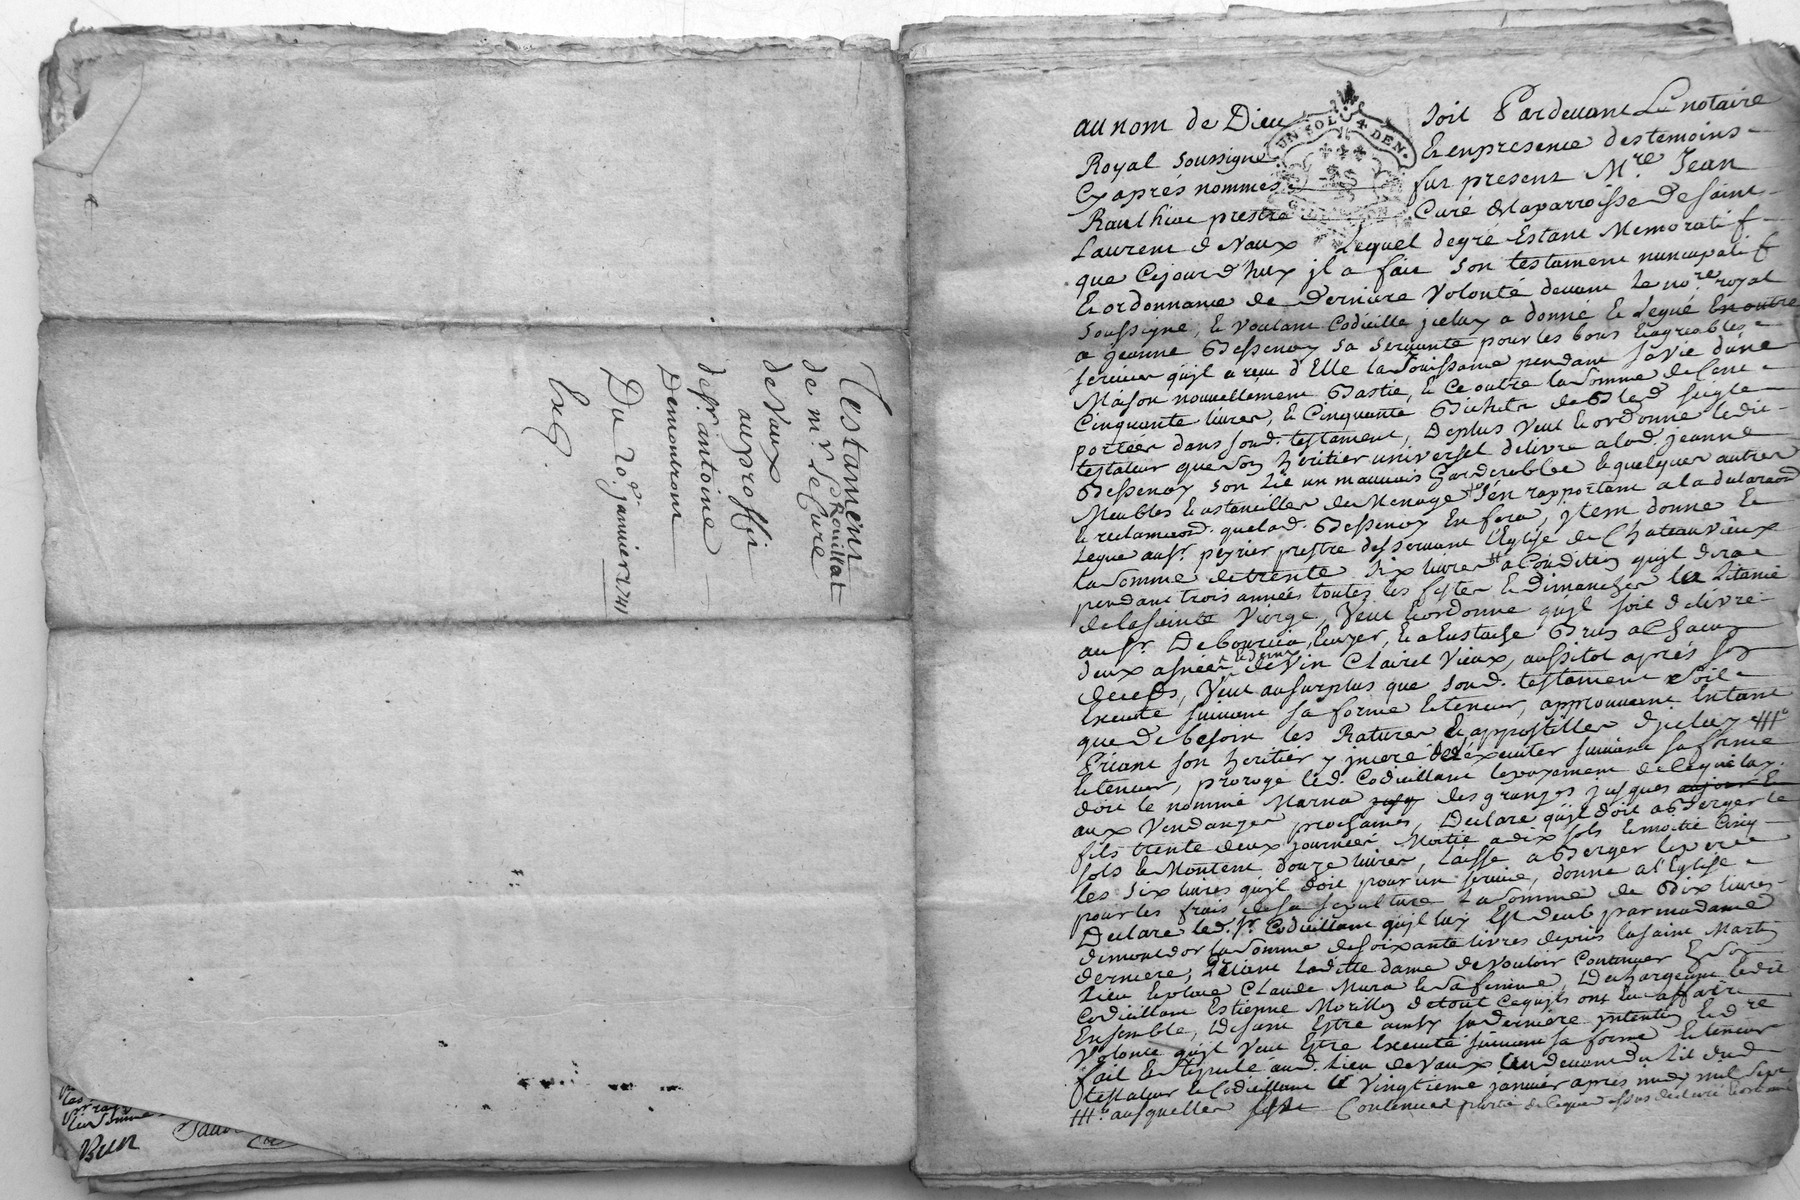 Testament
de mr. le Curé
Rouillat
de Vaux
au proffit
de sr. antoine
Demontront
Du 20e. janvier 1741
Exp.
au nom de Dieu soit Pardevant Le notaire
UN SOL 4 DEN.
Royal soussigné Et en presence des temoins
Cy aprés nommés fut present Mre. Jean
prestre Curé de la parroisse de Saint
Laurent de Vaux Lequel de gré Estant Memoratif
que Cejourd'huy jl a fait son testament nuncupatif
Et ordonnance de derniere Volonté devant le nore. royal
soussigné, et voulant Codiciller jceluy a donné et Legué En outre
a jeanne Bessenay sa servante pour les bons et agreables
services qu'jl a receu d'Elle la Jouissance pendant sa vie d'une
Maison nouvellement Bastie, et ce outre la somme de Cent
Cinquante livres, et Cinquante Bichets de Bled seigle
portées dans sond. testament, Deplus Veut et ordonne ledit
testateur que son heritier universel delivre a lad. jeanne
Bessenay son Lit un mauvais Garderobbe et quelques autres
Meubles et ustancilles de Menage s'en rapportant a la declaraon
et que lad. Bessenay En fera, jtem donne et
Legue au sr. peyrier prestre desservant l'Eglise de Chateauvieux
la somme de trente six livres a Condition qu'jl dira
pendant trois années toutes les festes et Dimanches les Litanie
de la sainte Vierge, Veut et ordonne qu'jl soit delivré
au sr. De Ecuyer, et a Eustache Brun a Chacun
deux asnées et demy de Vin Clairet Vieux, aussitot aprés son
deceds, Veut au surplus que sond. testament soit
Executé suivant sa forme et teneur, approuvant Entant
que de besoin les Ratures et appostilles d'jceluy
Priant son heritier y jnseré de l'éxecuter suivant sa forme
et teneur, proroge led. Codicillant le payement de Ce que luy
doit le nommé Marna des granges jusques aujour E
aux Vendanges prochaines, Declare qu'jl doit a Berger le
fils trente deux journées, Moitié a dix sols et moitié Cinq
sols et Montent douze livres, laisse a Berger le pere
les six livres qu'jl doit pour un service, donne a l'Eglise
pour les frais de sa sepulture La somme de Dix livres
Declare led. sr. Codicillant qu'jl luy Est deub par madame
demontdor la somme de soixante livres depuis la saint Martin
derniere, Priant laditte dame de vouloir Continuer En son
Lieu et place Claude Mura et sa femme, Dechargeant ledit
Codicillant Estienne Morillon de tout Ce qu'jls ont Eu affaire
Ensemble, Disant Estre ainsy sa derniere jntention et dre
Volonté qu'jl Veut Estre Executé suivant sa forme et teneur
fait et stipulé aud. Lieu de Vaux au devant du Lit dud.
testateur et Codicillant le Vingtieme janvier aprés midy mil sept
ausquelles sont Contenues partie de ce que dessus declaré
Brun